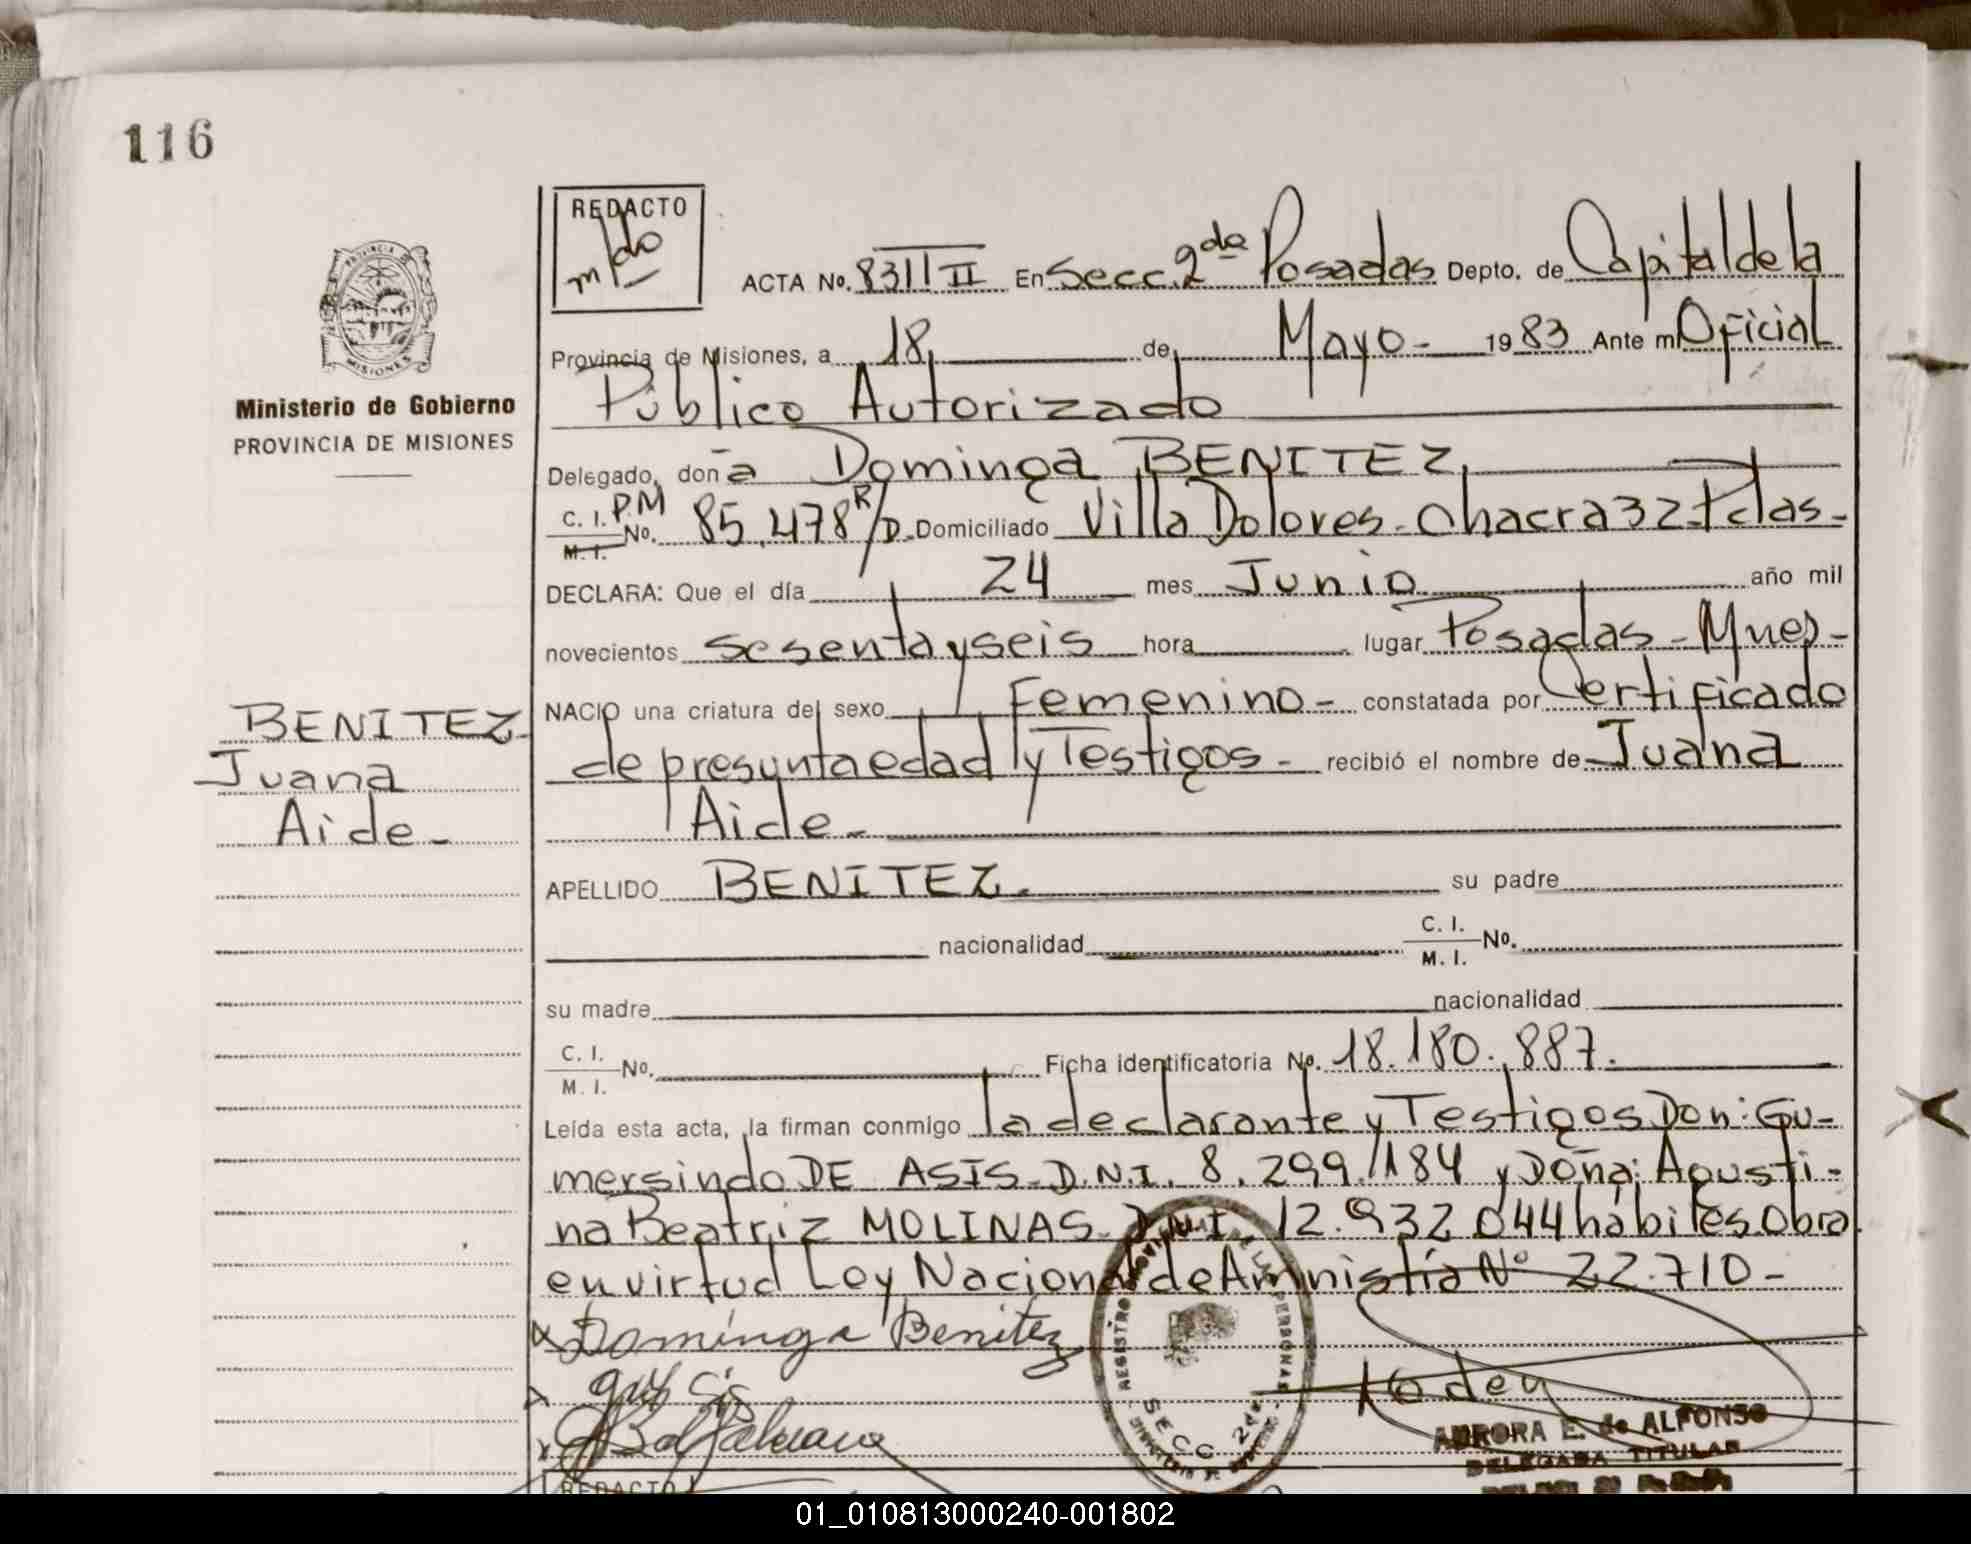 116
REDACTO
ACTA No. 831 II En Secc. 2da Posadas Depto. de Capital de la
Provincia de Misiones, a 18 de Mayo - 1983 Ante mi Oficial
Público Autorizado
PROVINCIA DE
MISIONES
Ministerio de Gobierno
PROVINCIA DE MISIONES
Delegado, don a Dominga BENITEZ,
C. I. P.M
M. I. No. 85.478 R/D. Domiciliado Villa Dolores - Chacra 32 - Pdas -
DECLARA: Que el día 24 mes Junio año mil
novecientos sesenta y seis hora lugar Posadas - Mnes -
NACIO una criatura del sexo Femenino - constatada por Certificado
de presunta edad y Testigos - recibió el nombre de Juana
Aide -
BENITEZ
Juana
Aide -
APELLIDO BENITEZ. su padre
nacionalidad C. I. M. I. No.
su madre nacionalidad
C. I. M. I. No. Ficha identificatoria No. 18.180.887.
Leída esta acta, la firman conmigo la declarante y Testigos Don: Gu-
mersindo DE ASIS - D.N.I. 8.299.184 y Doña: Agusti-
na Beatriz MOLINAS D.N.I. 12.932.044 hábiles. Obra
en virtud Ley Nacional de Amnistía Nº 22.710 -
Dominga Benitez
REGISTRO PROVINCIAL DE LAS PERSONAS
SECC. 2da
MINISTERIO DE GOBIERNO
AURORA E. de ALFONSO
DELEGADA TITULAR
REDACTO
01_010813000240-001802